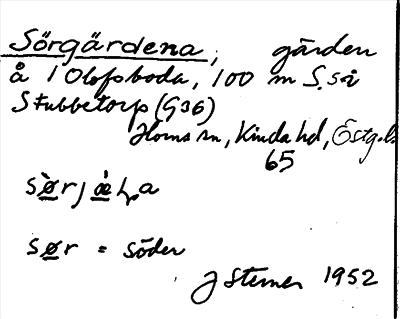 Sörgärdena, gärden
å 1 Olofsboda, 100 m S. s. i
Stubbetorp (G36)
Horns sn, Kinda hd, Östg.l.
65
sø̀rjæ̀ɳa
sør = söder
J Sterner 1952